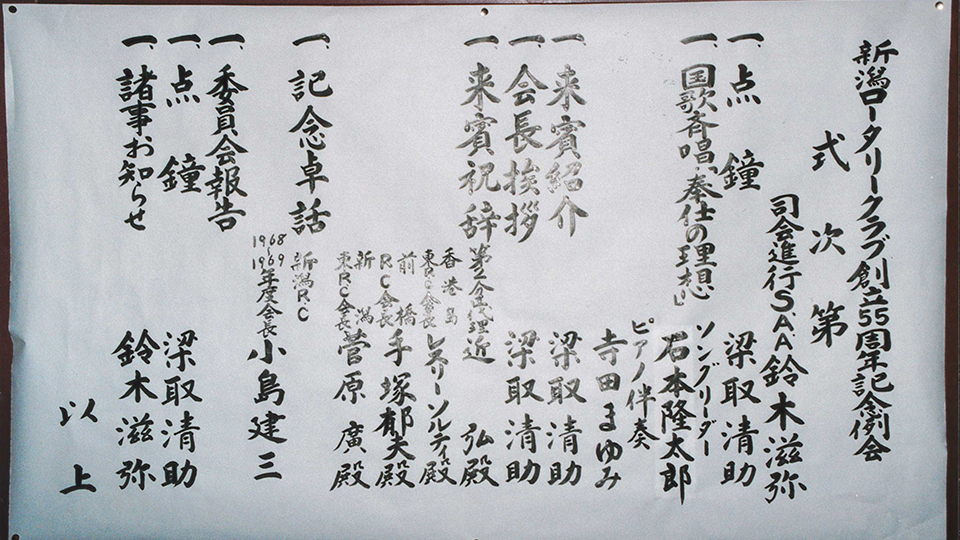 新潟ロータリークラブ創立55周年記念例会
式次第
司会進行S.A.A.鈴木滋弥
一、点鐘 梁取清助
一、国歌斉唱、「奉仕の理想」 ソングリーダー 石本隆太郎
ピアノ伴奏 寺田まゆみ
一、来賓紹介 梁取清助
一、会長挨拶 梁取清助
一、来賓祝辞 第2分区代理 近 弘殿
香港島東RC会長 レスリーソルティ殿
前橋RC会長 手塚郁夫殿
新潟東RC会長 菅原廣殿
一、記念卓話 新潟R.C 1968〜1969年度会長 小島建三
一、委員会報告
一、点鐘 梁取清助
一、諸事お知らせ 鈴木滋弥
以上